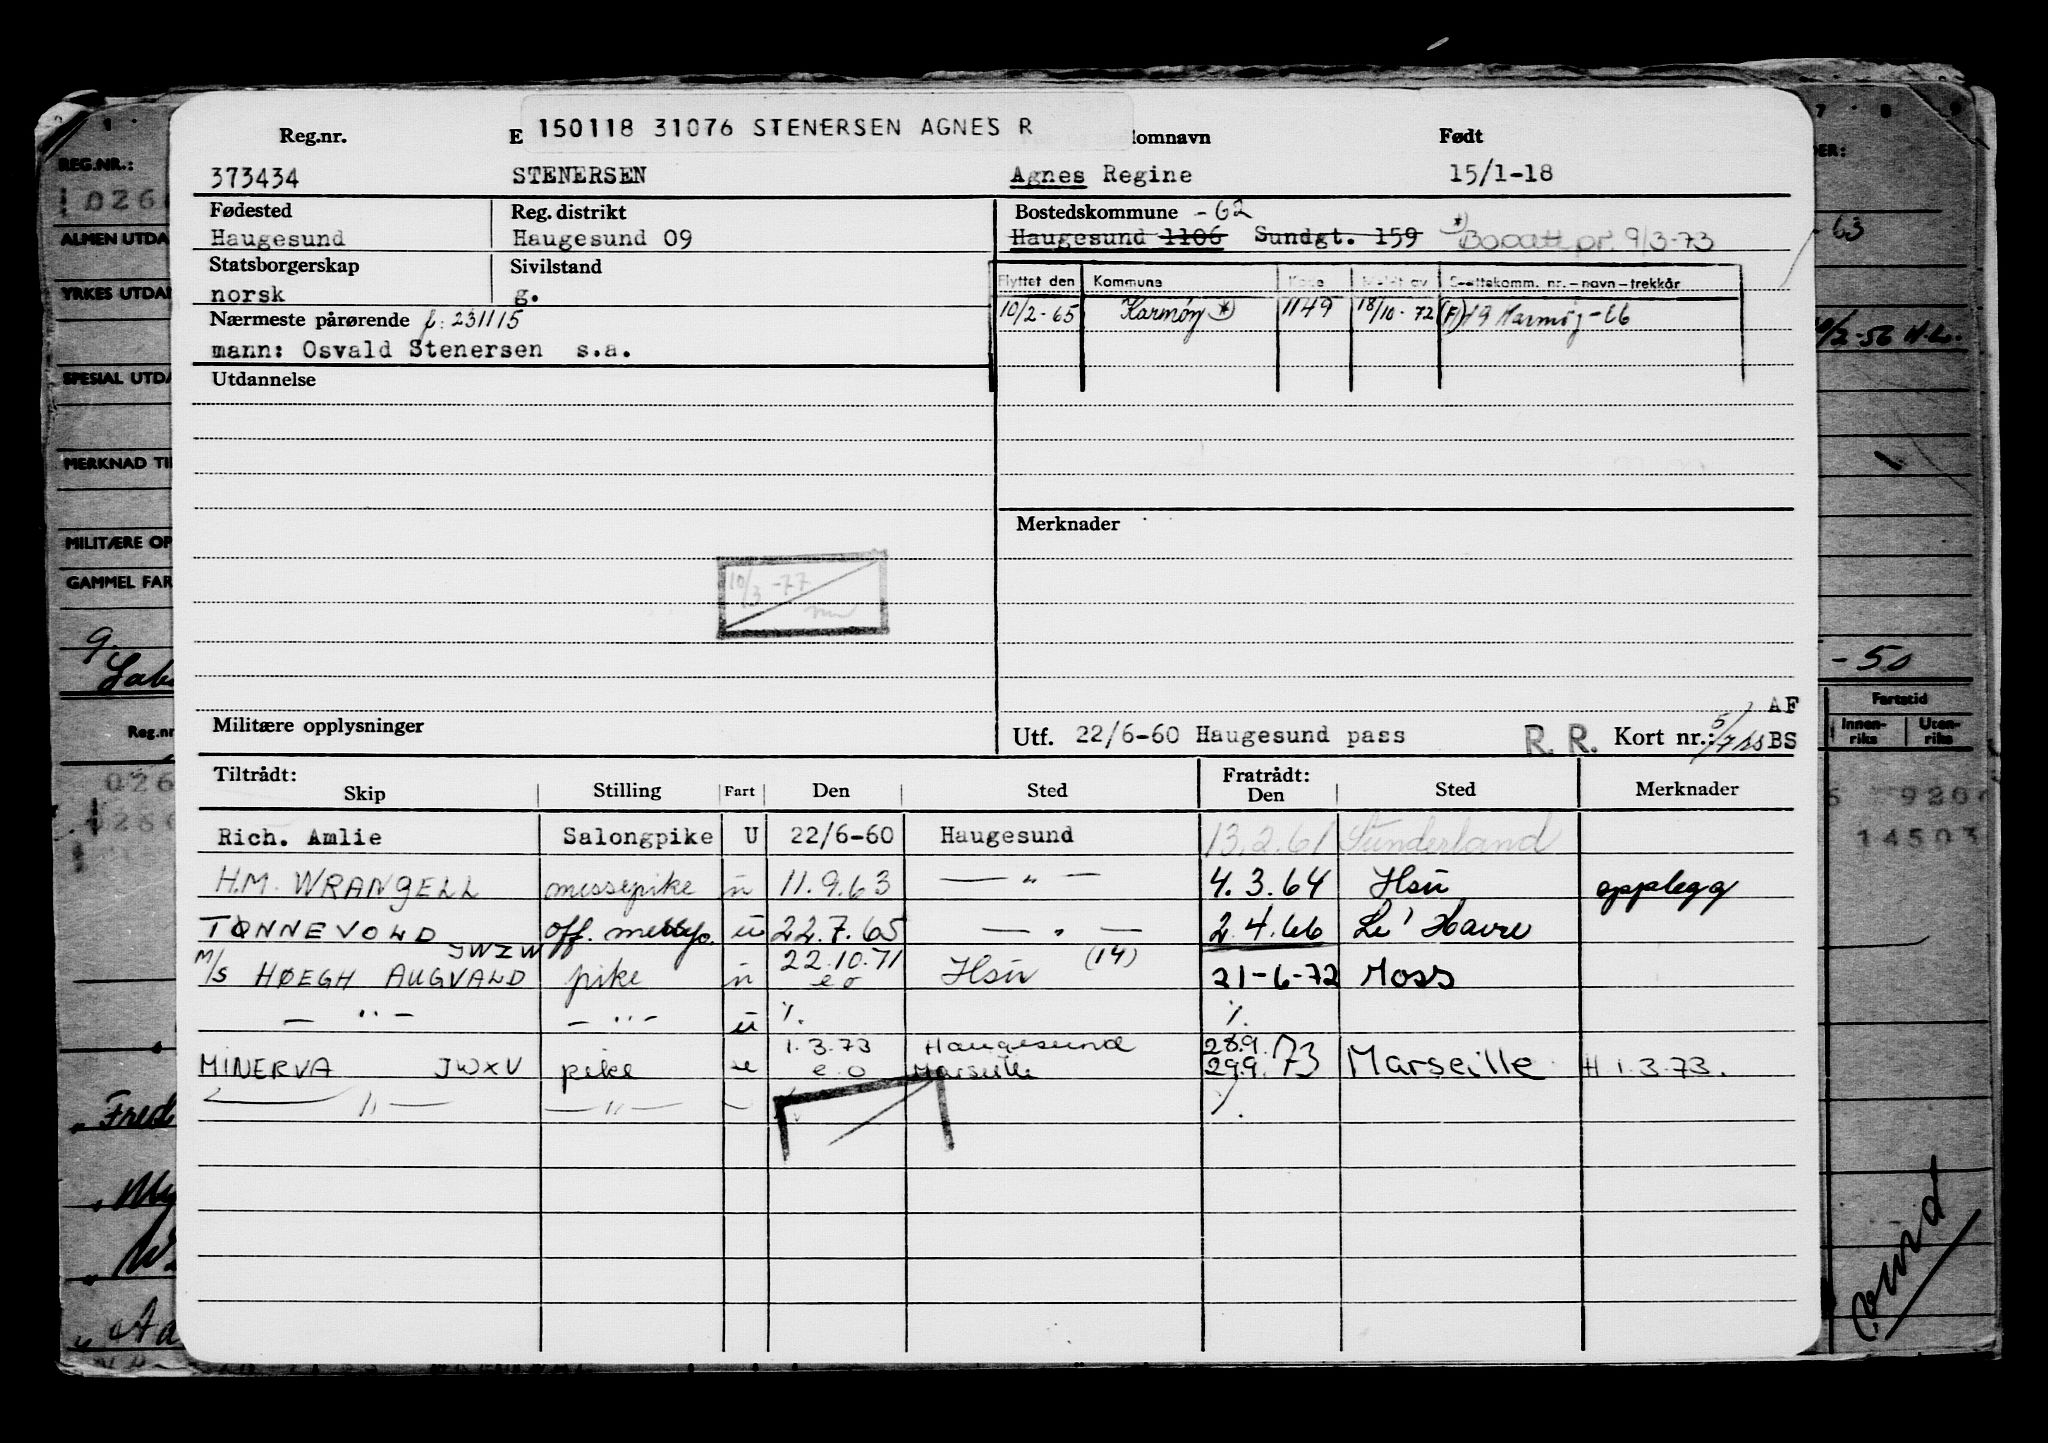 150118 31076 STENERSEN AGNES R
Reg.nr. E lomnavn Født
373434 STENERSEN Agnes Regine 15/1-18
Fødested Reg. distrikt Bostedskommune -62
Haugesund Haugesund 09 Haugesund 1106 Sundgt. 159 *) Bopatt pr. 9/3-73
Statsborgerskap Sivilstand
norsk g.
Flyttet den Kommune Kode Meldt av Skattekomm. nr.-navn-trekkår
10/2-65 Karmøy *) 1149 18/10-72 (F) 49 Karmøy-66
Nærmeste pårørende f: 231115
mann: Osvald Stenersen s.a.
Utdannelse
Merknader
10/3-77
Militære opplysninger
AF
Utf. 22/6-60 Haugesund pass R. R. Kort nr.: BS
Tiltrådt: Fratrådt:
Skip Stilling Fart Den Sted Den Sted Merknader
Rich. Amlie Salongpike U 22/6-60 Haugesund 13.2.61 Sunderland
H.M. WRANGELL messepike u 11.9.63 — " — 4.3.64 Hsu opplegg
TØNNEVOLD off. u 22.7.65 — " — 2.4.66 Le' Havre
M/S HØEGH AUGVALD JWZW pike u 22.10.71 eo Hsu (14) 21-6-72 Moss
— " — — " — u %. %.
MINERVA JWXV pike u 1.3.73 Haugesund 28.9.73 Marseille H 1.3.73.
e.o Marseille 29.9.
— " — — " — — %.
REG.NR.:
ALMEN UTDA
YRKES UTDAN
SPESIAL UTDA
MERKNAD TI
MILITÆRE OP
GAMMEL FAR
g.
Reg.nr
Fred
7 8 9
DER:
-63
10/2-56 H.L.
-50
Fartstid
Innen-riks Uten-riks
9204
14503